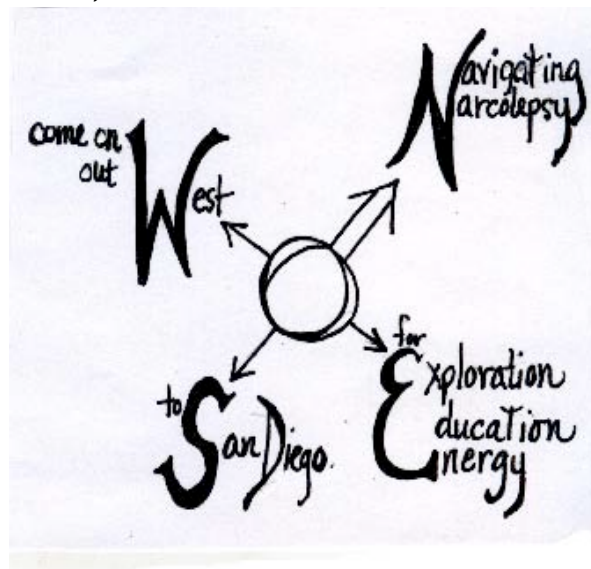 Navigating
Narcolepsy
come on
out West
to San Diego.
for
Exploration
Education
Energy